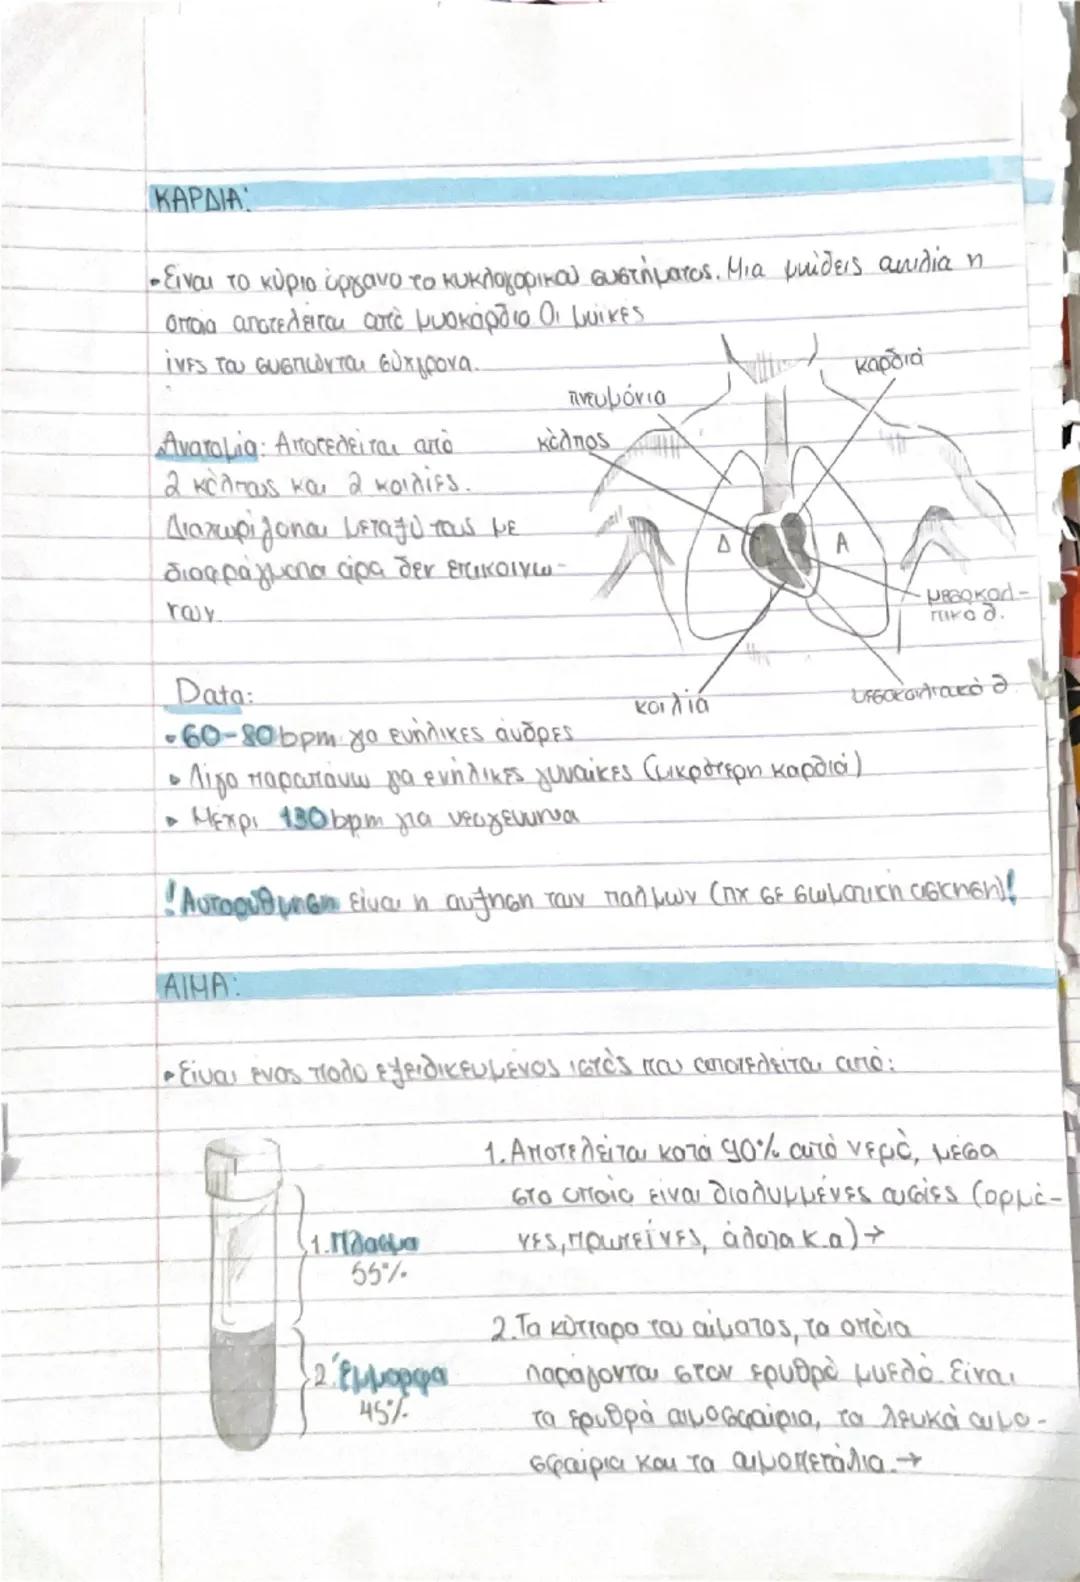 ΚΑΡΔΙΑ:
• Είναι το κύριο όργανο το κυκλοφορικού συστήματος. Μια μυώδεις αντλία η
οποία αποτελείται από μυοκάρδιο Οι μυϊκές
ίνες του συσπώνται σύχρονα.
Ανατομία: Αποτελείται από
2 κόλπους και 2 κοιλίες.
Διαχωρίζονται μεταξύ τους με
διαφράγματα άρα δεν επικοινω-
νουν.
πνευμόνια
καρδιά
κόλπος
Δ
Α
μεσοκολ-
πικο δ.
κοιλιά
μεσοκοιλιακό δ.
Data:
• 60-80 bpm για ενήλικες άνδρες
• Λίγο παραπάνω για ενήλικες γυναίκες (μικρότερη καρδιά)
• Μέχρι 130 bpm για νεογέννητα
! Αυτορύθμηση είναι η αυξηση των παλμών (πχ σε σωματική ασκηση)!
ΑΙΜΑ:
• Είναι ένας πολυ εξειδικευμένος ιστός που αποτελείται από:
1. Αποτελείται κατά 90% από νερό, μέσα
στο οποίο είναι διαλυμμένες ουσίες (ορμό-
νες, πρωτεΐνες, άλατα κ.α) →
1. Πλάσμα
55%
2. Τα κύτταρα του αίματος, τα οποία
παράγονται στον ερυθρό μυελό. Είναι
τα ερυθρά αιμοσφαίρια, τα λευκά αιμο-
σφαίρια και τα αιμοπετάλια. →
2. Έμμορφα
45%